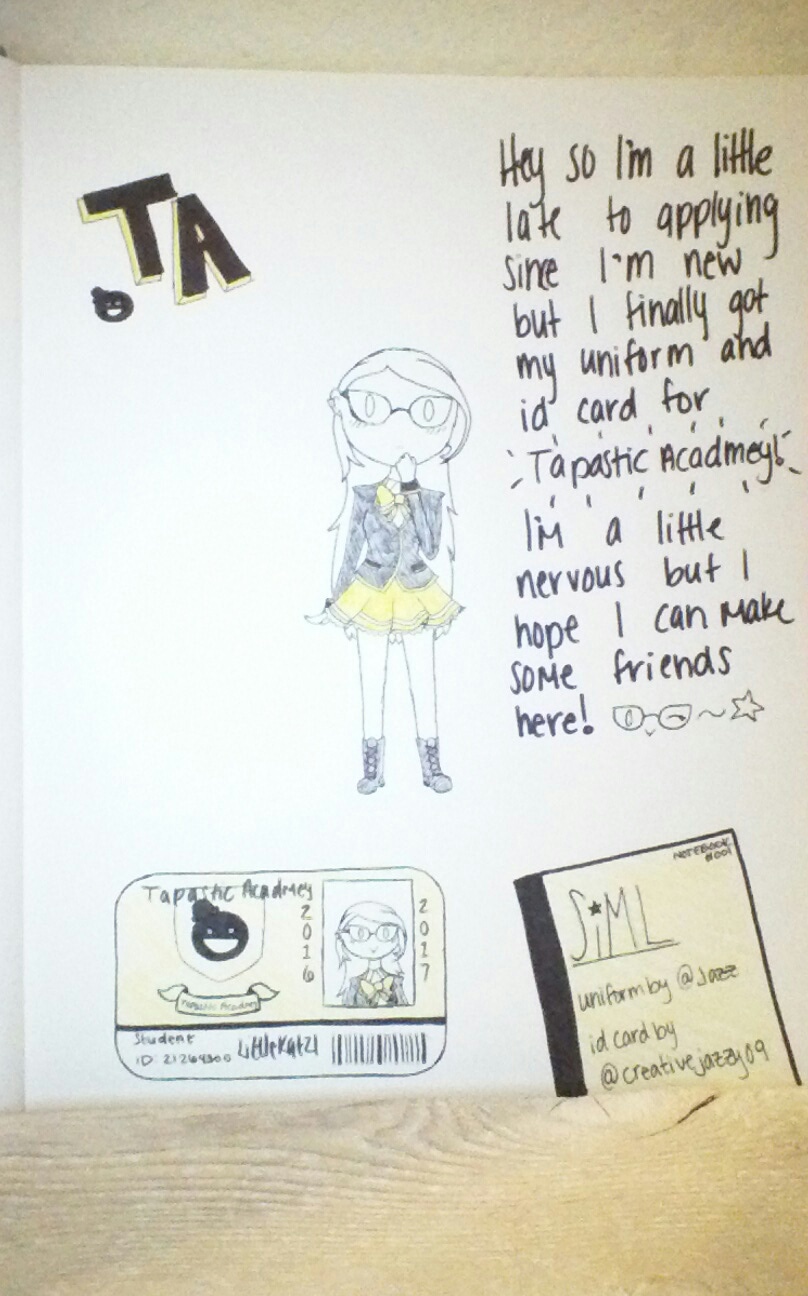 TA
Hey so I'm a little
late to applying
since I'm new
but I finally got
my uniform and
id card for
Tapastic Acadmey!
I'm a little
nervous but I
hope I can make
some friends
here!
Tapastic Acadmey
2016
2017
Tapastic Acadmey
Student
ID: 21264300 LittleKatz1
NOTEBOOK
#001
SiML
uniform by @Jazz
id card by
@creativejazzy09